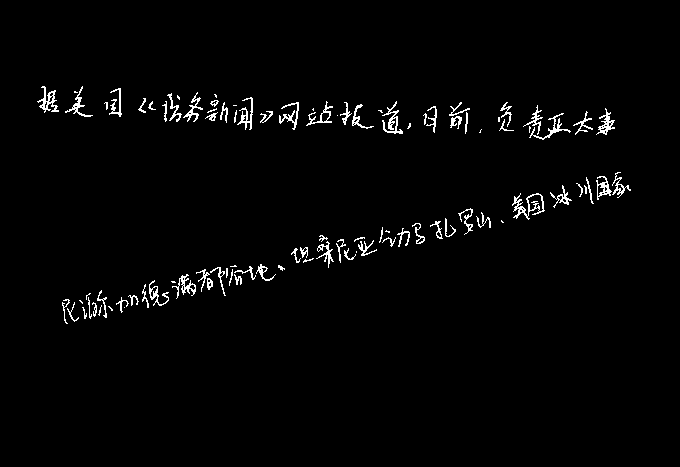 据美国《防务新闻》网站报道,日前,负责亚太事
尼泊尔加德满都谷地、坦桑尼亚乞力马扎罗山、美国冰川国家